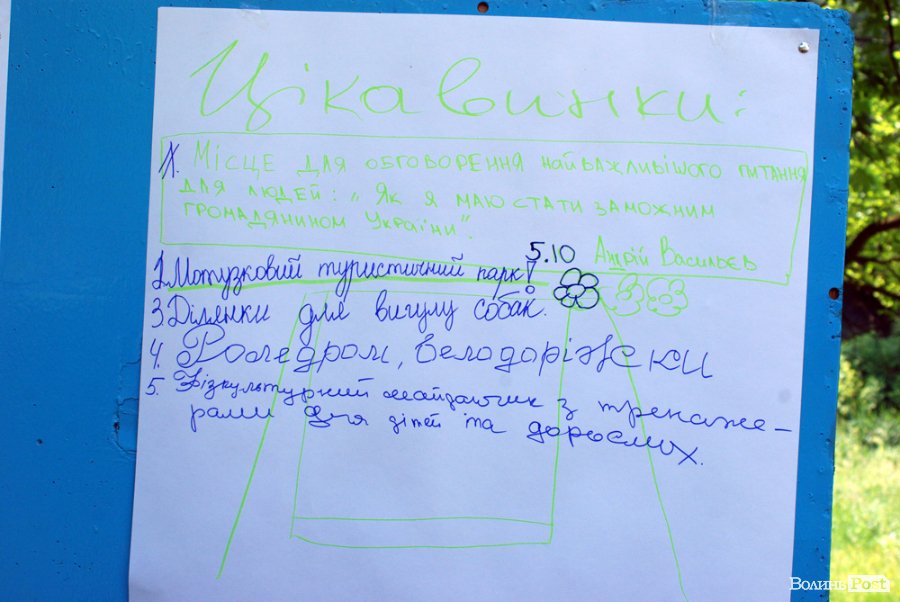 Цікавинки:
1. Місце для обговорення найважливішого питання
для людей: „Як я маю стати заможним
громадянином України".
5.10 Андрій Васильєв
2. Мотузковий туристичний парк!
3. Ділянки для вигулу собак.
4. Роледром, велодоріжки
5. Фізкультурний майданчик з тренаже-
рами для дітей та дорослих.
ВолиньPost